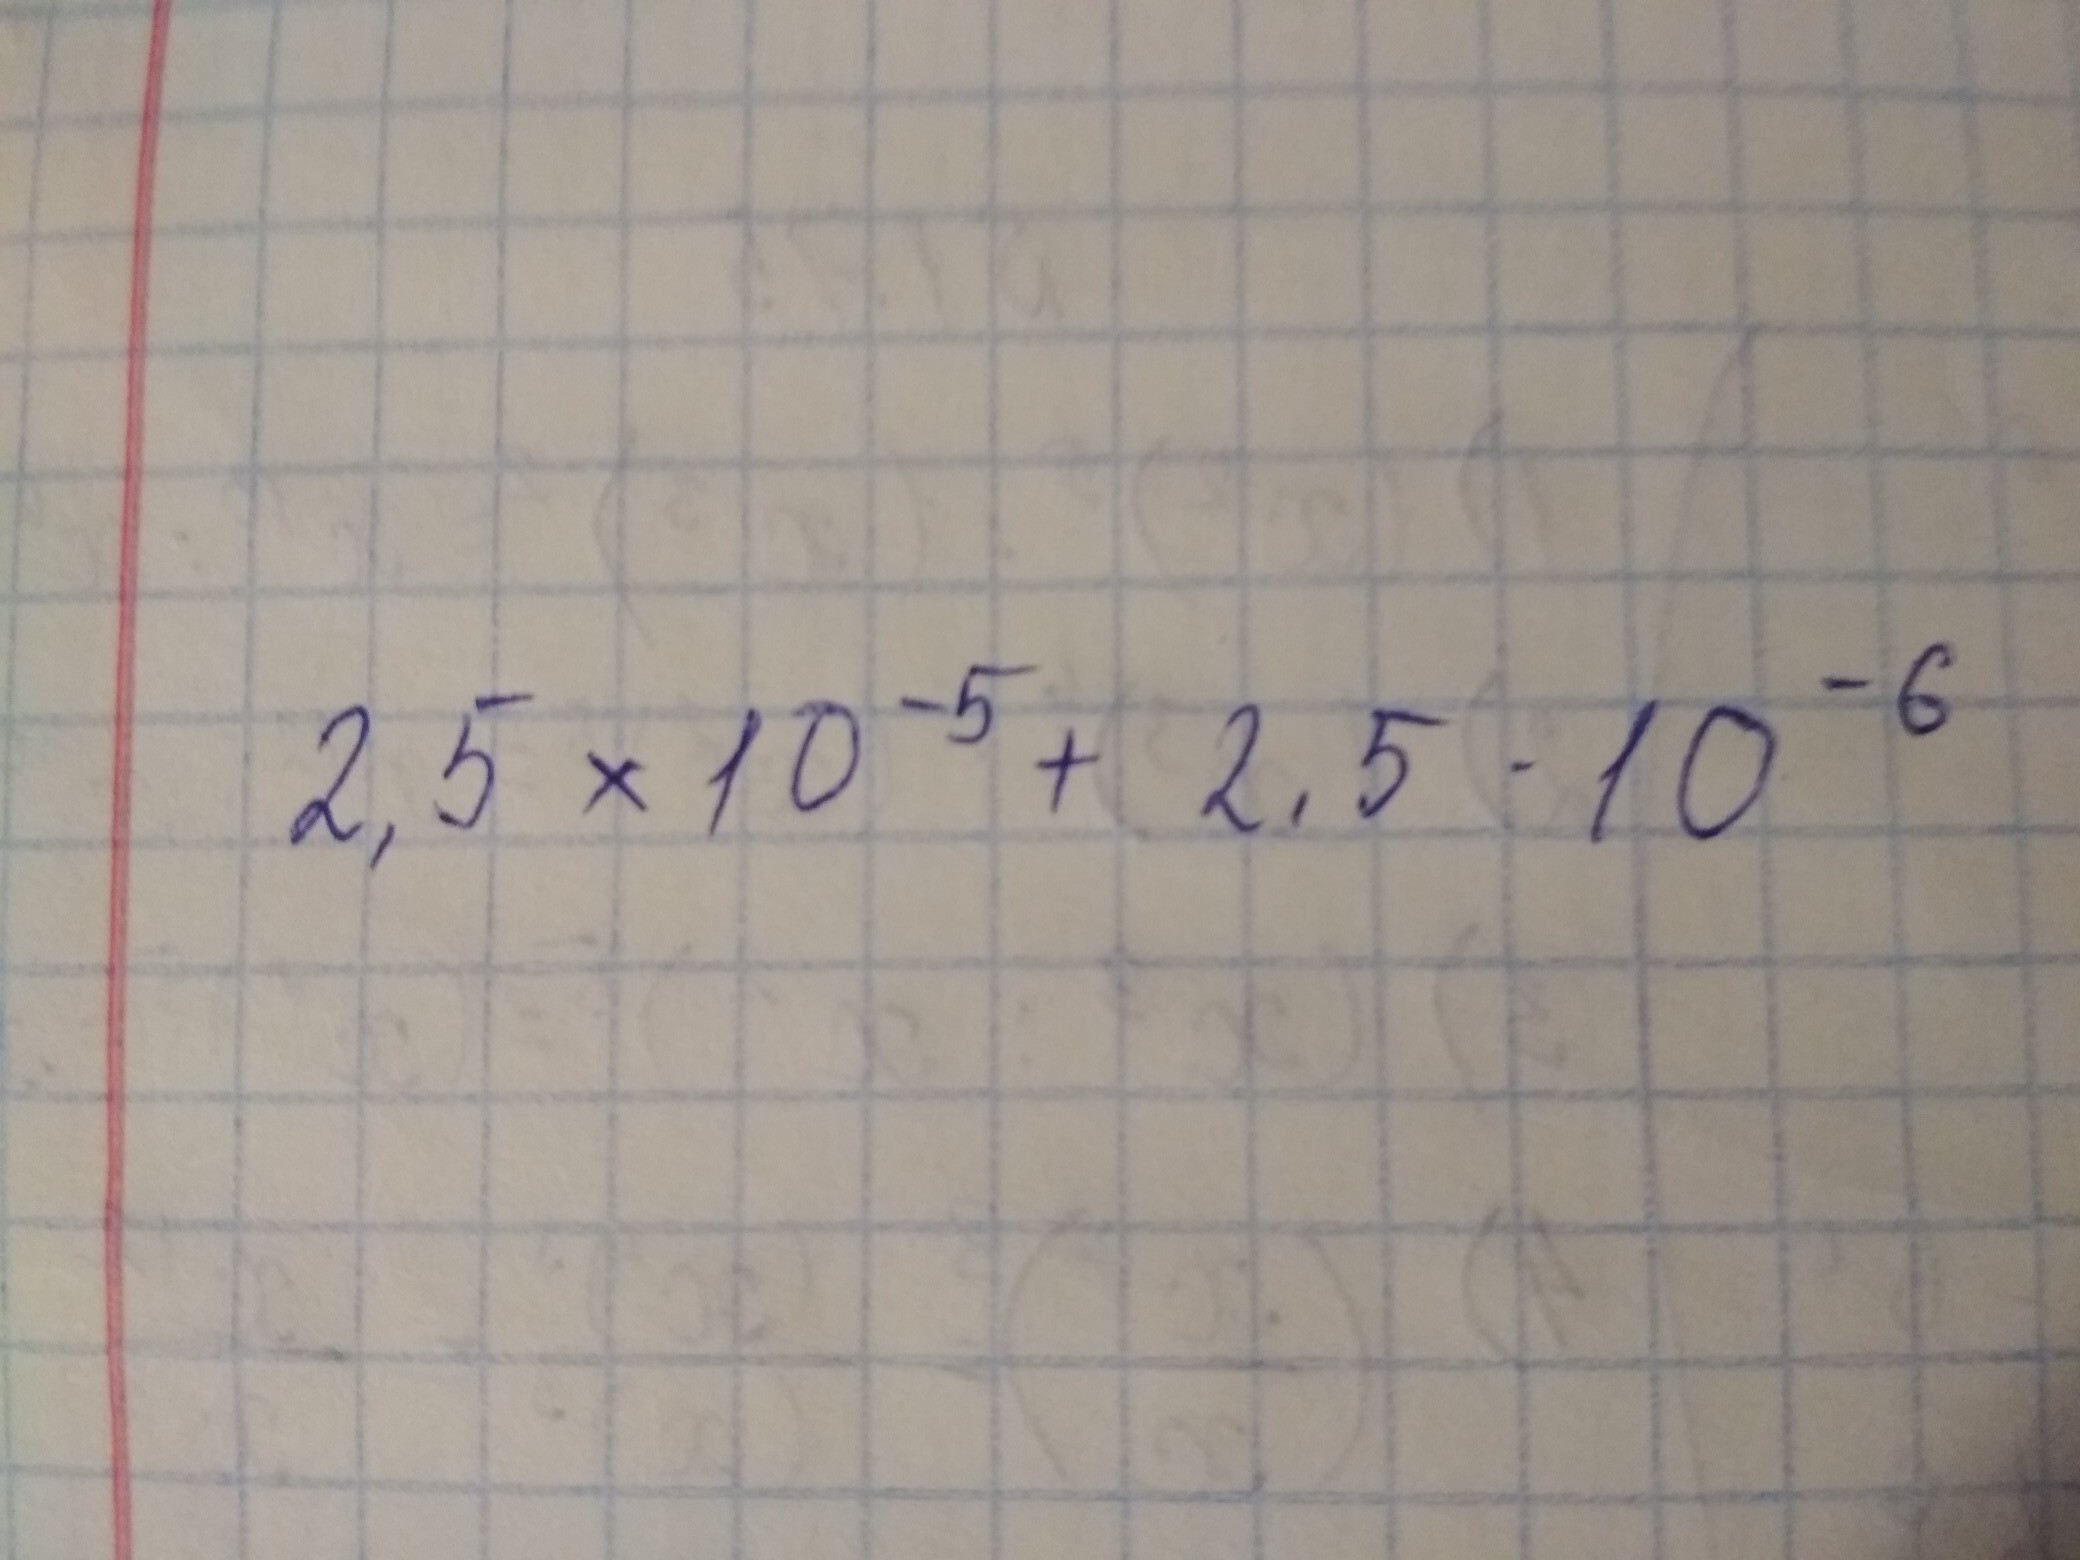 2,5 × 10⁻⁵ + 2.5 · 10⁻⁶